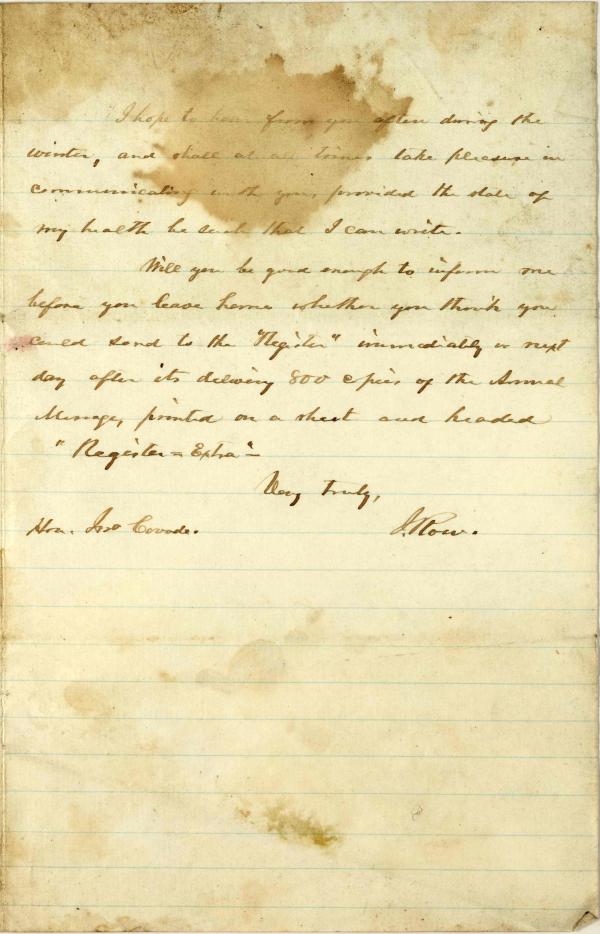 I hope to hear from you often during the
winter, and shall at all times take pleasure in
communicating with you, provided the state of
my health be such that I can write.
Will you be good enough to inform me
before you leave home whether you think you
could send to the "Register" immediately or next
day after its delivery 800 copies of the Annual
Message, printed on a sheet and headed
"Register = Extra"—
Very truly,
Hon. Jno Covode. J. Row.